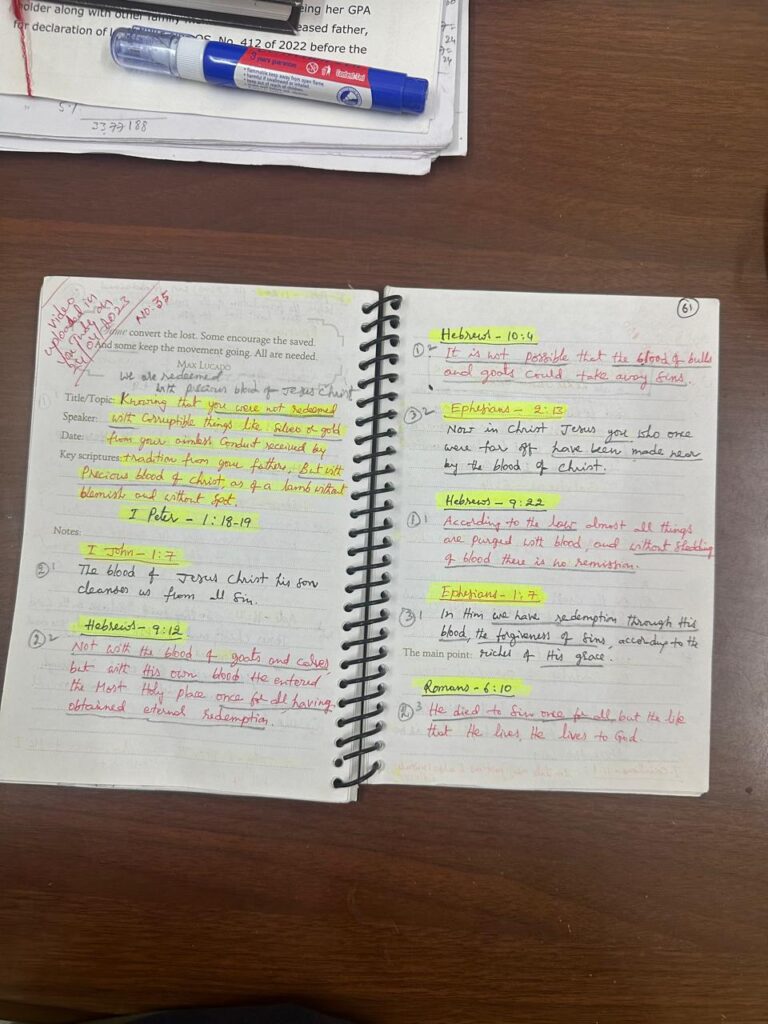 holder along with other family
eing her GPA
eased father,
for declaration of
OS. No. 412 of 2022 before the
3 years guarantee
• flammable.keep away from open flame
• harmful if swallowed or inhaled
• keep out of reach of children
24
24
3377188
video
uploaded in
You Tube on
24/04/2023
No. 35
convert the lost. Some encourage the saved.
And some keep the movement going. All are needed.
MAX LUCADO
we are redeemed
with precious blood of Jesus Christ
Title/Topic: Knowing that you were not redeemed
Speaker: with Corruptible things like Silver or gold
Date: from your aimless Conduct received by
Key scriptures: tradition from your father, But with
Precious blood of Christ, as of a lamb without
blemish and without Spot.
I Peter - 1:18-19
Notes:
I John - 1:7
② 1 The blood of Jesus Christ his son
cleanses us from all Sin.
Hebrews - 9:12
② 2 Not with the blood of goats and calves,
but with His own blood He entered
the Most Holy place once for all, having
obtained eternal redemption.
61
Hebrews - 10:4
① 2 It is not possible that the blood of bulls
and goats could take away Sins.
Ephesians - 2:13
③ 2 Now in Christ Jesus you who once
were far off have been made near
by the blood of Christ.
Hebrews - 9:22
① 1 According to the law almost all things
are purged with blood, and without Shedding
of blood there is no remission.
Ephesians - 1:7
③ 1 In Him we have redemption through His
blood, the forgiveness of Sins, according to the
The main point: riches of His grace.
Romans - 6:10
② 3 He died to Sin once for all, but the life
that He lives, He lives to God.